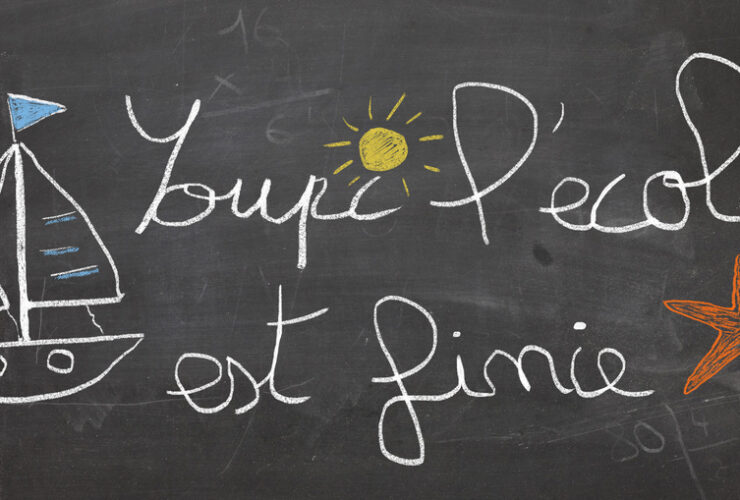 Youpi l'ecol
est finie